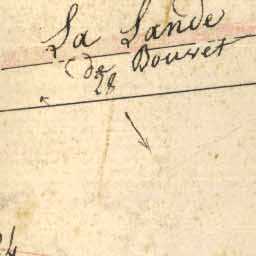 La Lande
de Bouret
28
24